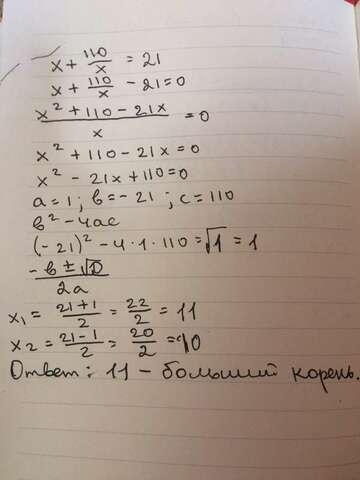 x + 110/x = 21
x + 110/x - 21 = 0
x² + 110 - 21x / x = 0
x² + 110 - 21x = 0
x² - 21x + 110 = 0
a = 1; b = -21; c = 110
b² - 4ac
(-21)² - 4·1·110 = √1 = 1
-b ± √D / 2a
x₁ = 21+1/2 = 22/2 = 11
x₂ = 21-1/2 = 20/2 = 10
Ответ: 11 - больший корень.